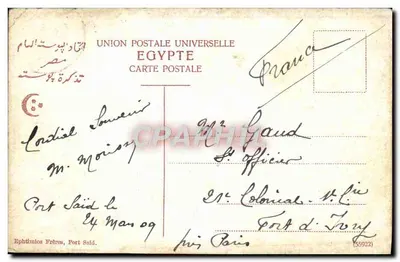 اتحاد البوستة العام
مصر
تذكرة بوستة
UNION POSTALE UNIVERSELLE
EGYPTE
CARTE POSTALE
Franca
Cordial Souvenir
M. Moissy
Port Saïd le
24 Mars 09
Mr Gaud
St officier
21e Colonial - 1e Cie
Fort d'Ivry
près Paris
Ephtimios Frères, Port-Said.
(55922)
CPARAMA.COM